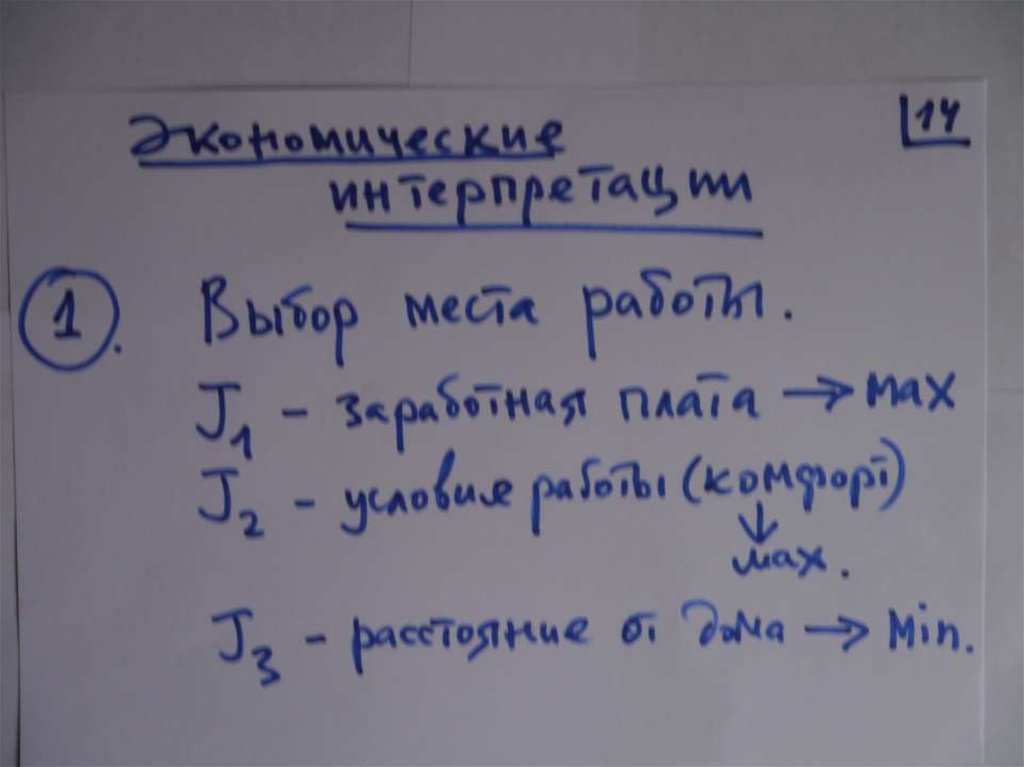 14
Экономические
интерпретации
1. Выбор места работы.
J1 - заработная плата → max
J2 - условие работы (комфорт)
↓
max.
J3 - расстояние от дома → min.